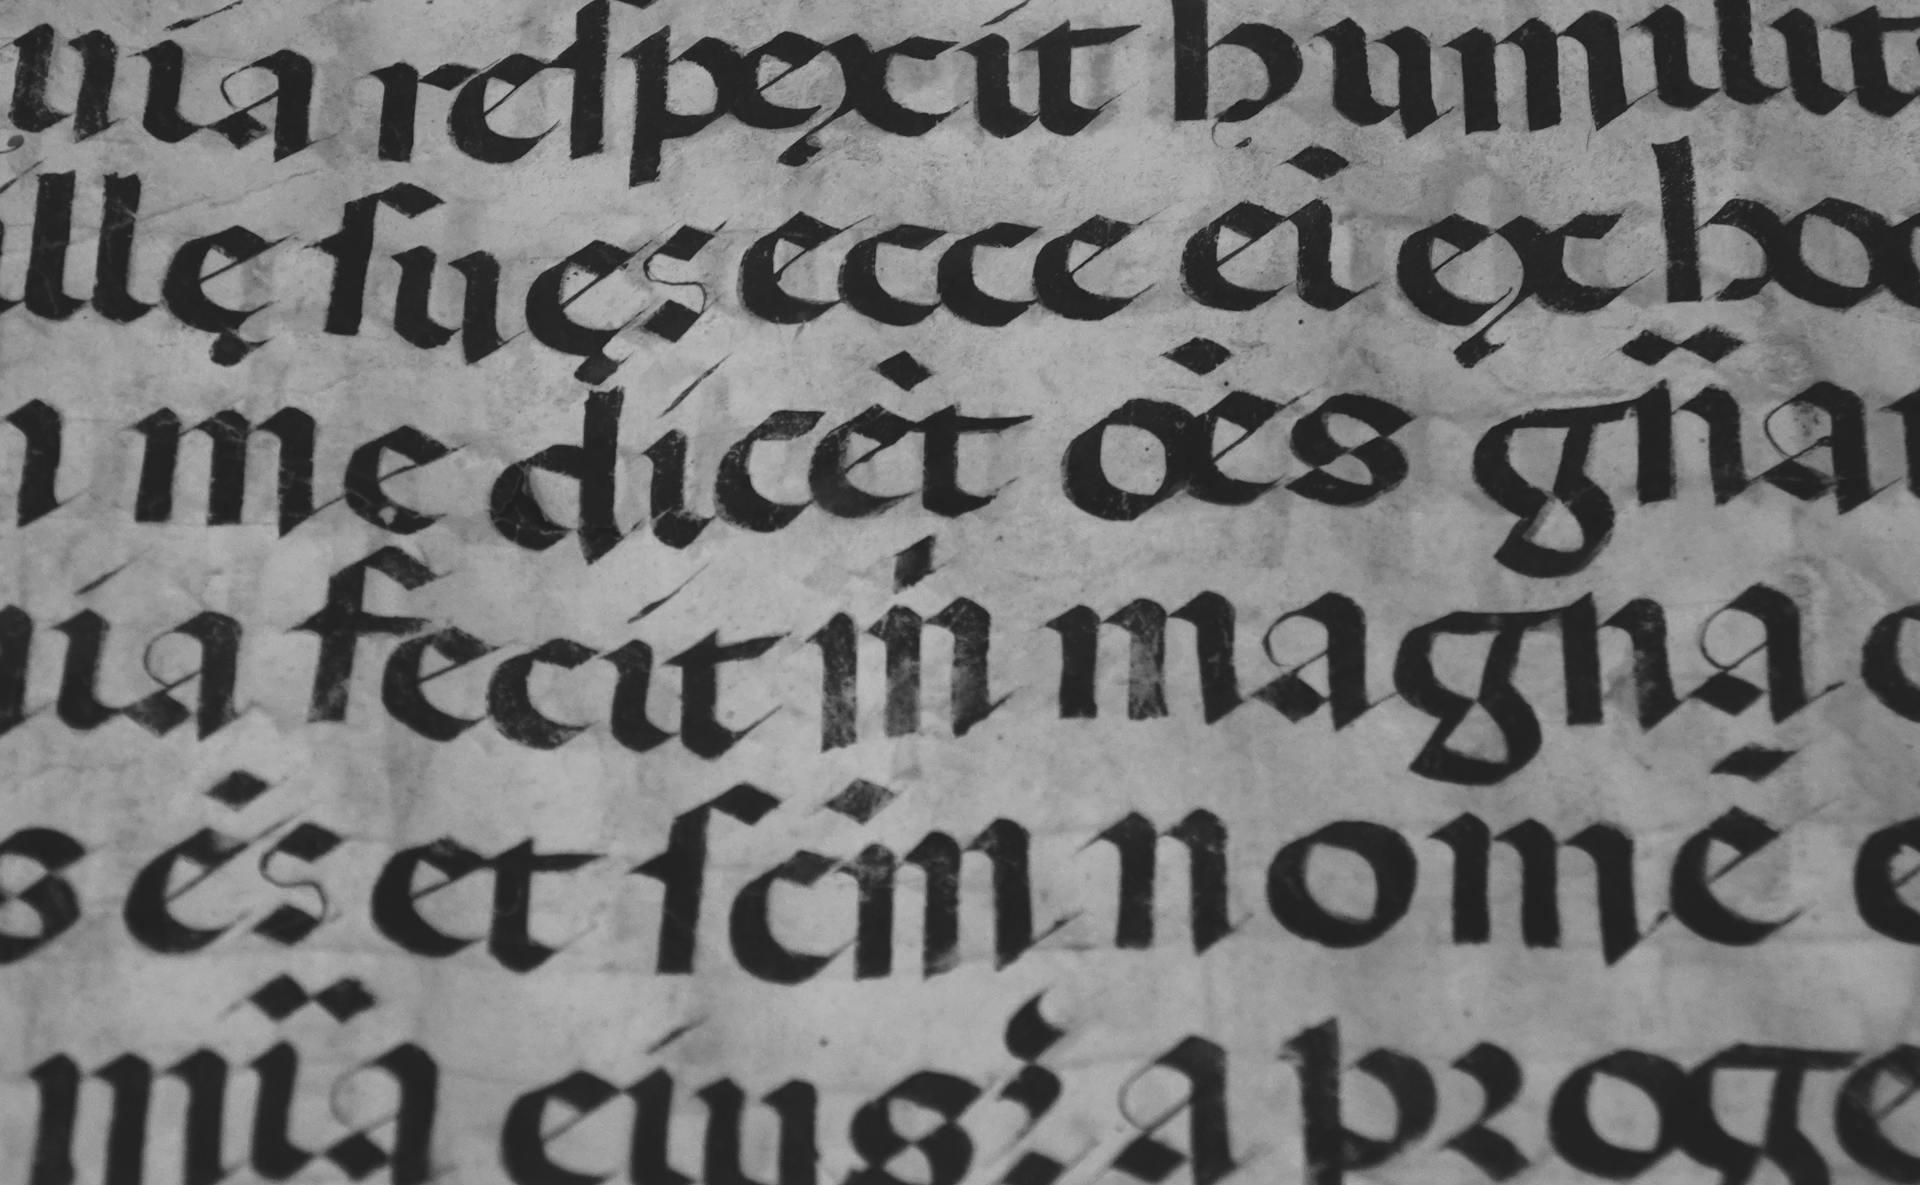 uia reſpęxit humilit
illę ſuęs ecce ei ęx hoc
i me dicėt oė̇s gn̈a
uia fecit iṁ magna
s ės et ſcṁ nomē e
mïa eius; a proge